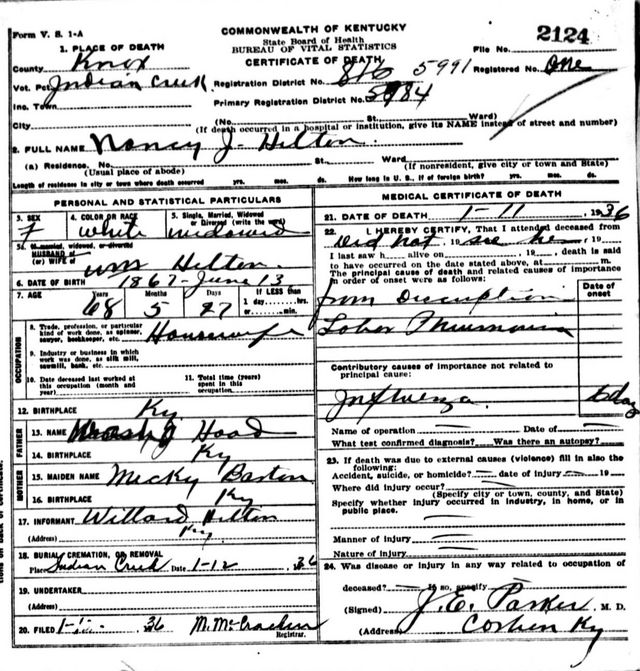 Form V. S. 1-A
COMMONWEALTH OF KENTUCKY
State Board of Health
BUREAU OF VITAL STATISTICS
CERTIFICATE OF DEATH
2124
File No.
1. PLACE OF DEATH
County Knox
Vot. Pct Indian Creek
Registration District No. 816 5991 Registered No. One
Inc. Town
Primary Registration District No. 5984
City (No. St. Ward)
(If death occurred in a hospital or institution, give its NAME instead of street and number)
2. FULL NAME Nancy J. Hilton
(a) Residence. No. St. Ward
(Usual place of abode) (If nonresident, give city or town and State)
Length of residence in city or town where death occurred yrs. mos. ds. How long in U. S., if of foreign birth? yrs. mos. ds.
PERSONAL AND STATISTICAL PARTICULARS
3. SEX F
4. COLOR OR RACE white
5. Single, Married, Widowed or Divorced (write the word) widowed
5a. If married, widowed, or divorced
HUSBAND of
(or) WIFE of Wm Hilton
6. DATE OF BIRTH 1867-June 13
7. AGE Years 68 Months 5 Days 27 If LESS than 1 day, hrs. or min.
OCCUPATION
8. Trade, profession, or particular kind of work done, as spinner, sawyer, bookkeeper, etc. Housewife
9. Industry or business in which work was done, as silk mill, sawmill, bank, etc.
10. Date deceased last worked at this occupation (month and year)
11. Total time (years) spent in this occupation
12. BIRTHPLACE Ky
FATHER
13. NAME Hood
14. BIRTHPLACE Ky
MOTHER
15. MAIDEN NAME Micky Barton
16. BIRTHPLACE Ky
17. INFORMANT Willard Hilton
(Address) Ky
18. BURIAL, CREMATION, OR REMOVAL
Place Indian Creek Date 1-12 36
19. UNDERTAKER
(Address)
20. FILED 36 Registrar.
MEDICAL CERTIFICATE OF DEATH
21. DATE OF DEATH 1-11, 1936
22. I HEREBY CERTIFY, That I attended deceased from
Did not, 19 see he, 19
I last saw h alive on, 19, death is said
to have occurred on the date stated above, at m.
The principal cause of death and related causes of importance
in order of onset were as follows:
Date of onset
from Discription
Lobar Pneumonia
Contributory causes of importance not related to
principal cause:
Influenza 6 day
Name of operation Date of
What test confirmed diagnosis? Was there an autopsy?
23. If death was due to external causes (violence) fill in also the
following:
Accident, suicide, or homicide? date of injury 19
Where did injury occur?
(Specify city or town, county, and State)
Specify whether injury occurred in industry, in home, or in
public place.
Manner of injury
Nature of injury
24. Was disease or injury in any way related to occupation of
deceased? If so, specify
(Signed) J. E. Parker, M. D.
(Address) Corben Ky